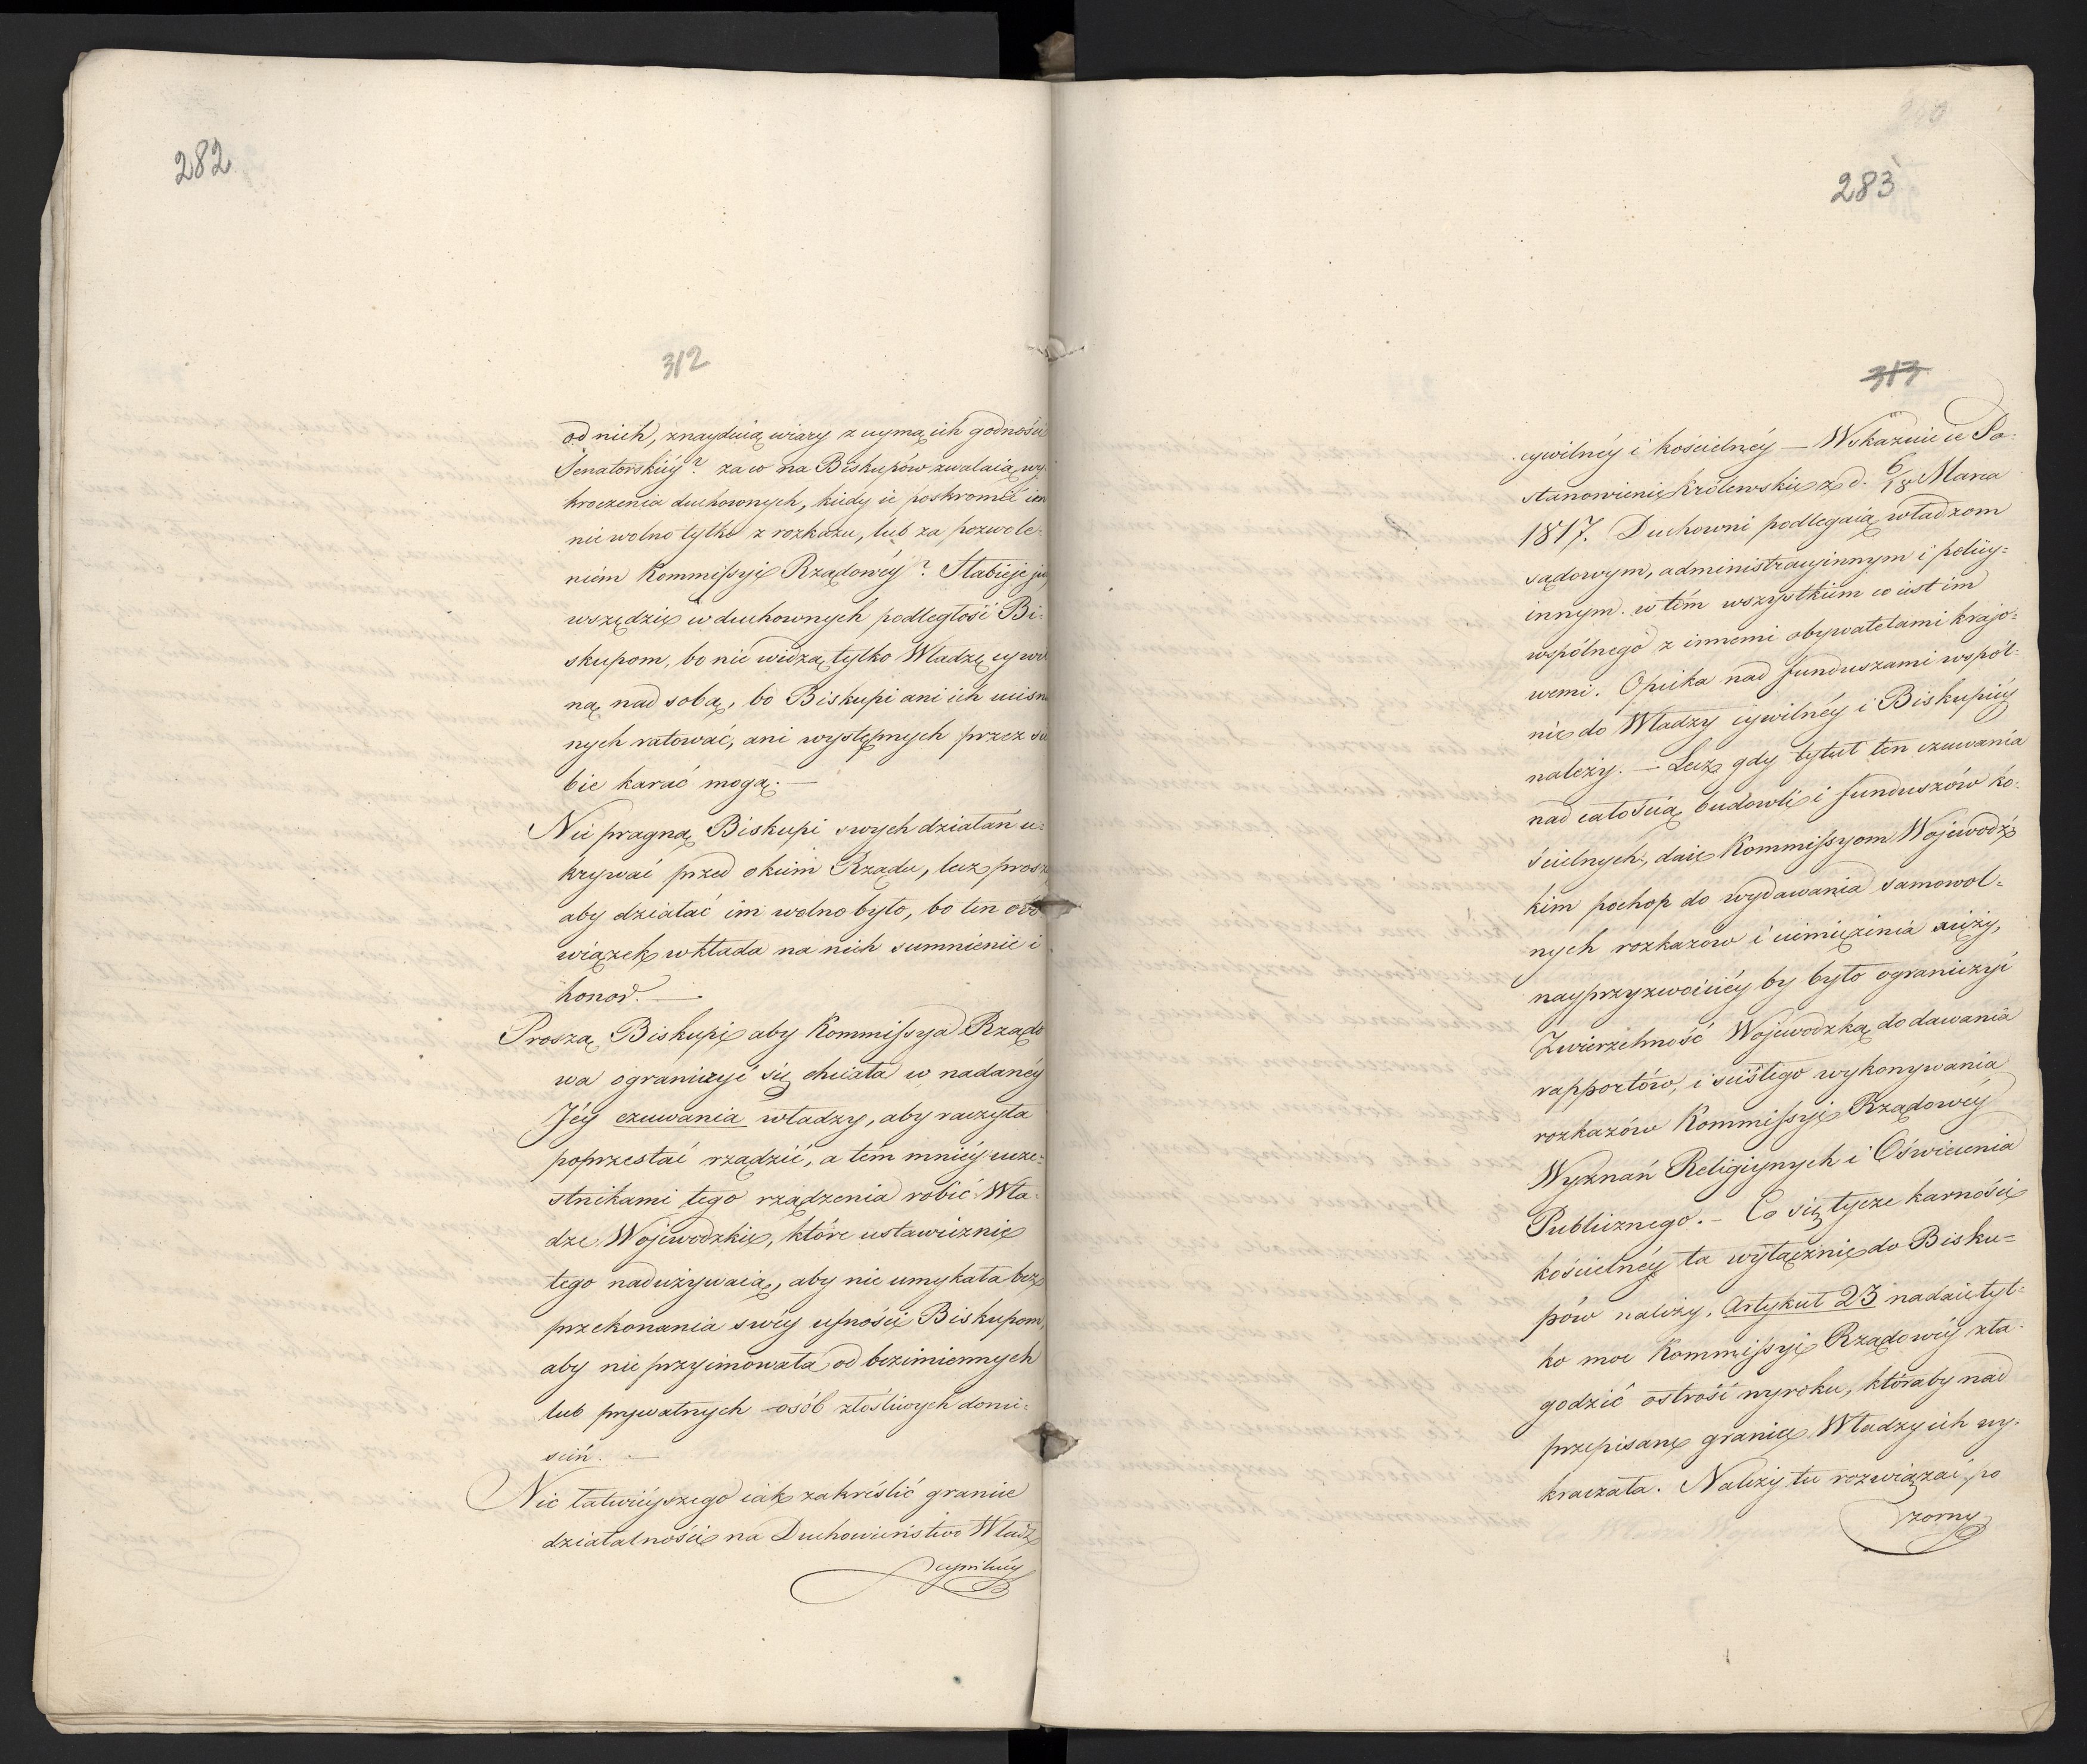 282
312
od nich, znayduią wiary z uymą ich godności
Senatorskiéy? za co na Biskupów zwalaią wy-
kroczenia duchownych, kiedy ie poskromić im
nie wolno tylko z rozkazu, lub za pozwole-
niém Kommissyi Rządowéy? Słabieje już
wszędzie w duchownych podległość Bi-
skupom, bo nie widzą tylko Władzę cywil
ną nad sobą, bo Biskupi ani ich uciśnio
nych ratować, ani występnych przez sie
bie karać mogą. —
Nie pragną Biskupi swych działań u-
krywać przed okiem Rządu, lecz proszą
aby działać im wolno było, bo ten obo
wiązek wkłada na nich sumnienie i
honor. —
Proszą Biskupi aby Kommissya Rządo
wa ograniczyć się chciała w nadanéy
Jéy czuwania władzy, aby raczyła
poprzestać rządzić, a tém mniéy ucze-
stnikami tego rządzenia robić Wła-
dze Wojewodzkie, które ustawicznie
tego nadużywaią, aby nie umykała bez
przekonania swéy ufności Biskupom,
aby nie przyimowała od bezimiennych
lub prywatnych osób złośliwych donie-
sień. —
Nic łatwiéyszego iak zakreślić granice
działalności na Duchowieństwo Władz
cywilnéy
283
313
cywilnéy i kościelnéy — Wskazuie ie Po-
stanowienie Królewskie z d. 6/18 Marca
1817. Duchowni podlegaią władzom
sądowym, administracyinnym i policy-
innym w tém wszystkiem co iest im
wspólnego z innemi obywatelami krajo-
wemi. Opieka nad funduszami wspól-
nie do Władzy cywilnéy i Biskupiéy
należy. — Lecz gdy tytuł ten czuwania
nad całością budowli i funduszów ko-
ścielnych, daie Kommissyom Wojewodz
kim pochop do wydawania samowol-
nych rozkazów i uciemiężenia xięży,
nayprzyzwoiciéy by było ograniczyć
Zwierzchność Wojewodzką do dawania
rapportów, i ścisłego wykonywania
rozkazów Kommissyi Rządowéy
Wyznań Religiynych i Oświecenia
Publicznego. — Co się tycze karności
kościelnéy ta wyłącznie do Bisku-
pów należy. Artykuł 23 nadaie tyl-
ko moc Kommissyi Rządowéy zła-
godzić ostrość wyroku, któraby nad
przepisane granice Władzy ich wy-
kraczała. Należy tu rozwiązać po
zorny